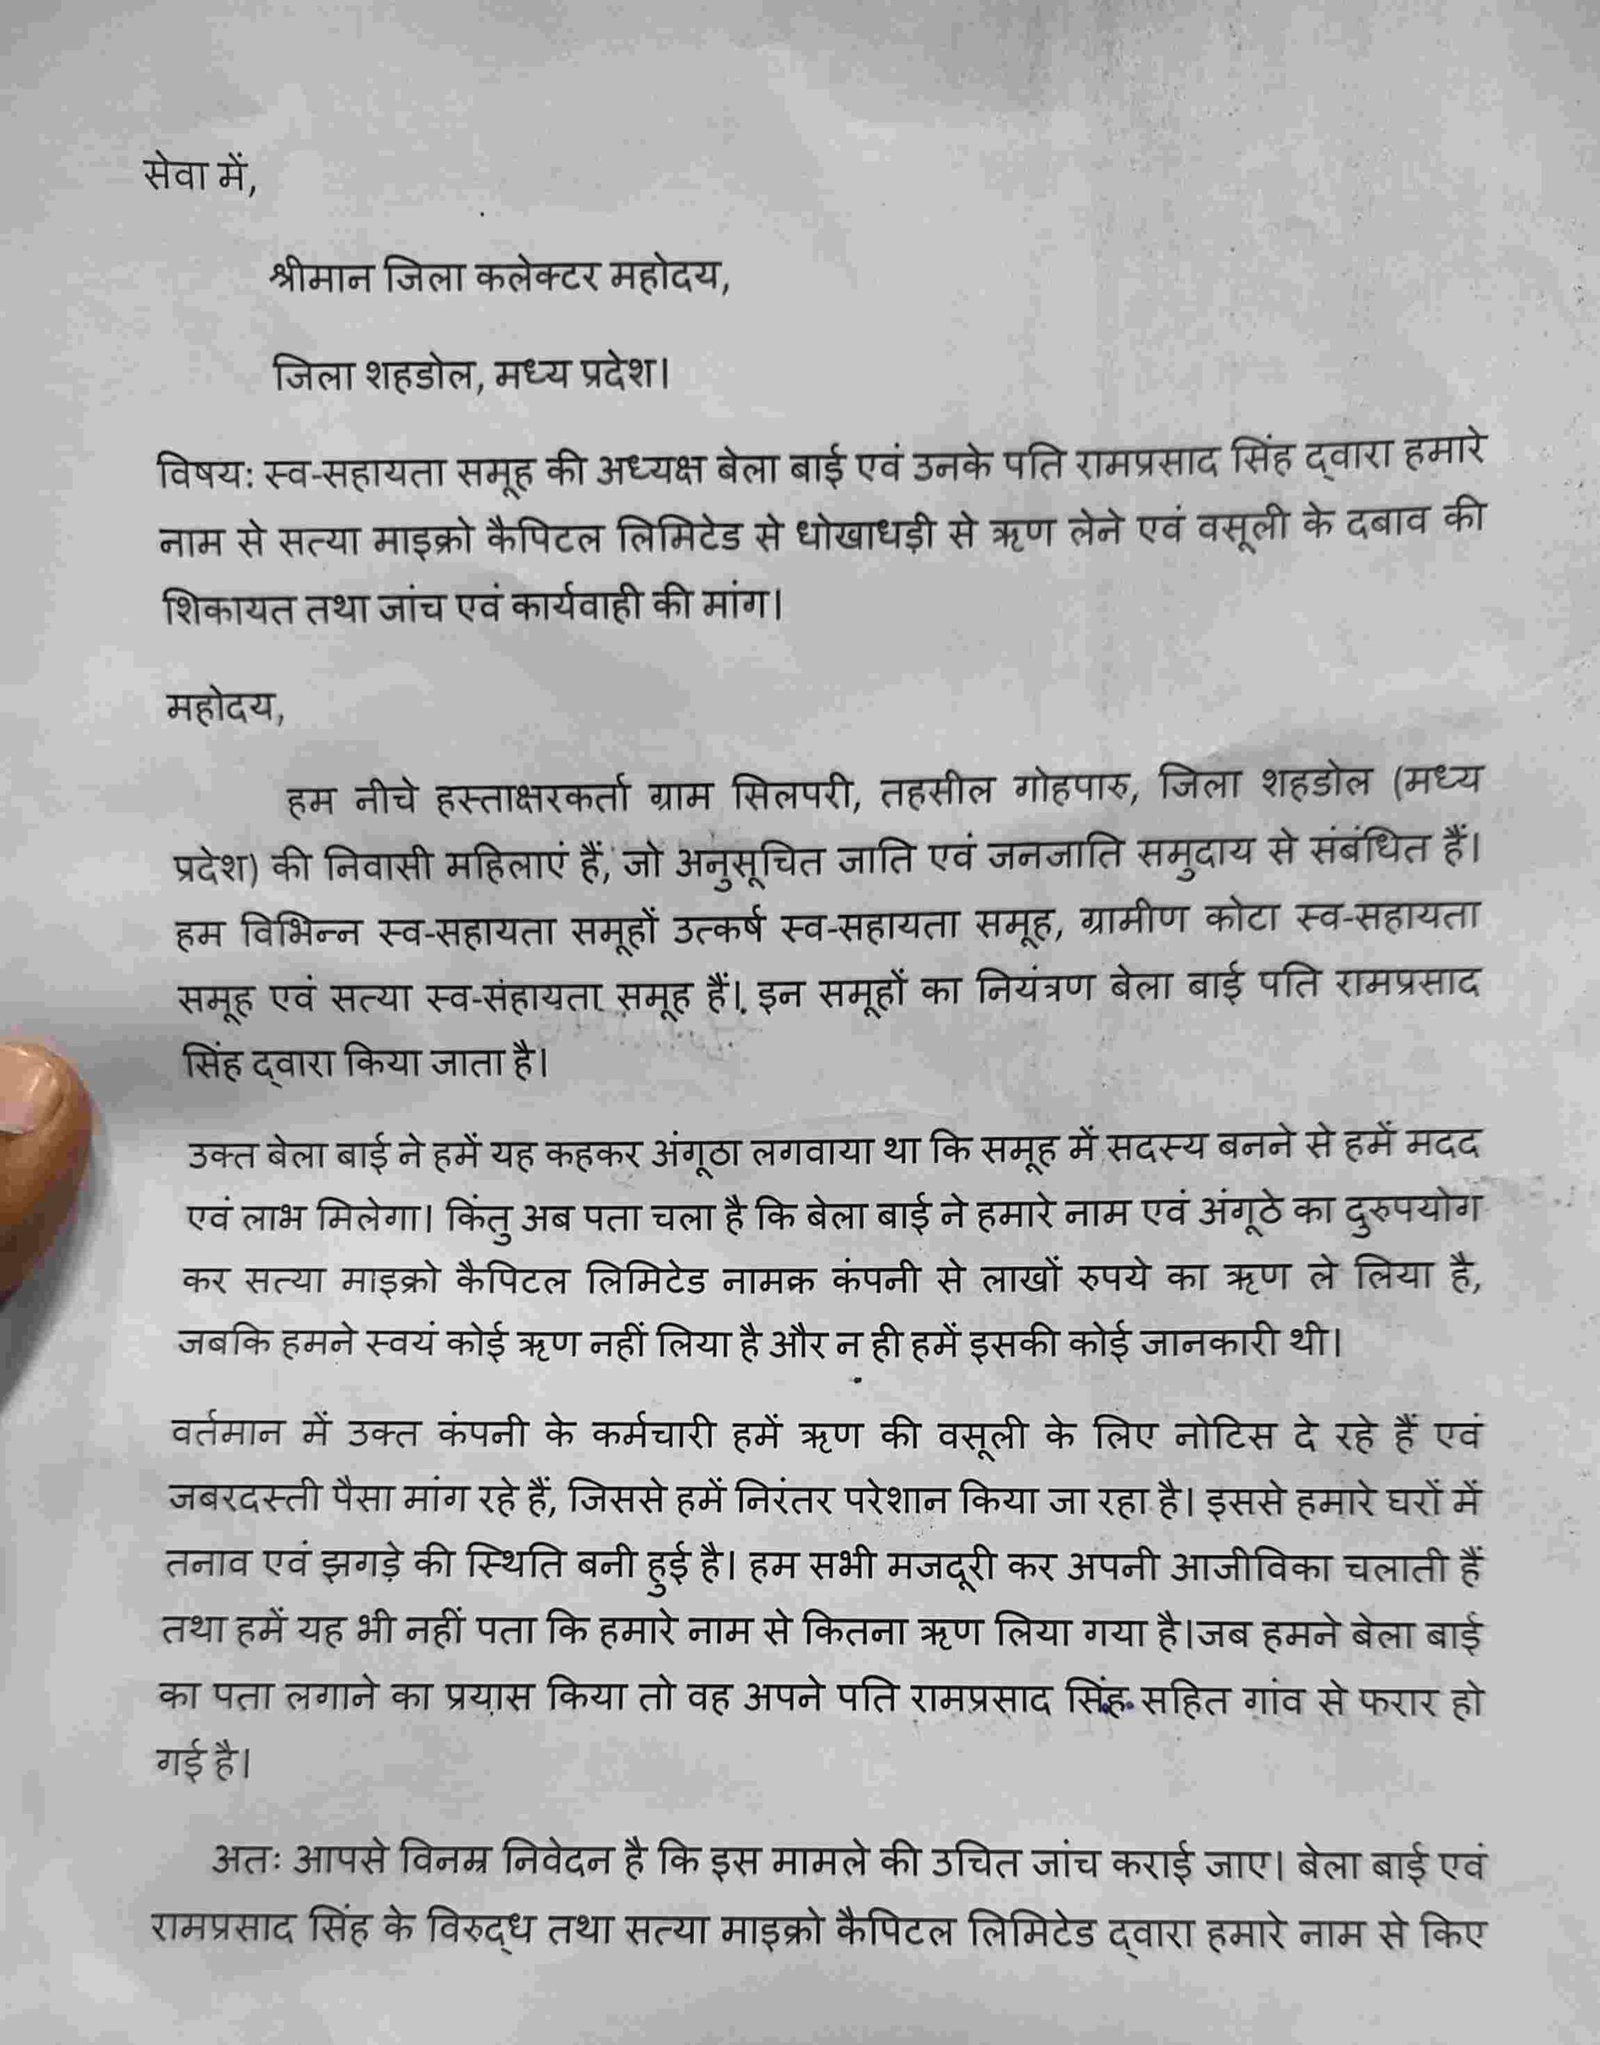 सेवा में,
श्रीमान जिला कलेक्टर महोदय,
जिला शहडोल, मध्य प्रदेश।
विषय: स्व-सहायता समूह की अध्यक्ष बेला बाई एवं उनके पति रामप्रसाद सिंह द्वारा हमारे
नाम से सत्या माइक्रो कैपिटल लिमिटेड से धोखाधड़ी से ऋण लेने एवं वसूली के दबाव की
शिकायत तथा जांच एवं कार्यवाही की मांग।
महोदय,
हम नीचे हस्ताक्षरकर्ता ग्राम सिलपरी, तहसील गोहपारु, जिला शहडोल (मध्य
प्रदेश) की निवासी महिलाएं हैं, जो अनुसूचित जाति एवं जनजाति समुदाय से संबंधित हैं।
हम विभिन्न स्व-सहायता समूहों उत्कर्ष स्व-सहायता समूह, ग्रामीण कोटा स्व-सहायता
समूह एवं सत्या स्व-संहायता समूह हैं। इन समूहों का नियंत्रण बेला बाई पति रामप्रसाद
सिंह द्वारा किया जाता है।
उक्त बेला बाई ने हमें यह कहकर अंगूठा लगवाया था कि समूह में सदस्य बनने से हमें मदद
एवं लाभ मिलेगा। किंतु अब पता चला है कि बेला बाई ने हमारे नाम एवं अंगूठे का दुरुपयोग
कर सत्या माइक्रो कैपिटल लिमिटेड नामक कंपनी से लाखों रुपये का ऋण ले लिया है,
जबकि हमने स्वयं कोई ऋण नहीं लिया है और न ही हमें इसकी कोई जानकारी थी।
वर्तमान में उक्त कंपनी के कर्मचारी हमें ऋण की वसूली के लिए नोटिस दे रहे हैं एवं
जबरदस्ती पैसा मांग रहे हैं, जिससे हमें निरंतर परेशान किया जा रहा है। इससे हमारे घरों में
तनाव एवं झगड़े की स्थिति बनी हुई है। हम सभी मजदूरी कर अपनी आजीविका चलाती हैं
तथा हमें यह भी नहीं पता कि हमारे नाम से कितना ऋण लिया गया है।जब हमने बेला बाई
का पता लगाने का प्रयास किया तो वह अपने पति रामप्रसाद सिंह सहित गांव से फरार हो
गई है।
अतः आपसे विनम्र निवेदन है कि इस मामले की उचित जांच कराई जाए। बेला बाई एवं
रामप्रसाद सिंह के विरुद्ध तथा सत्या माइक्रो कैपिटल लिमिटेड द्वारा हमारे नाम से किए